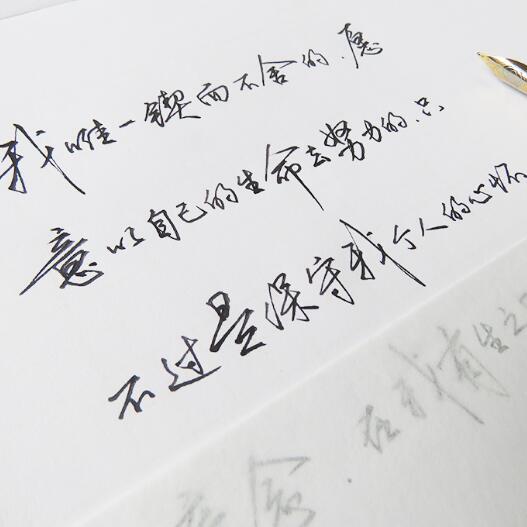 我唯一锲而不舍的，愿
意以自己的生命去努力的，只
不过是保守我个人的心怀
意念，在我有生之